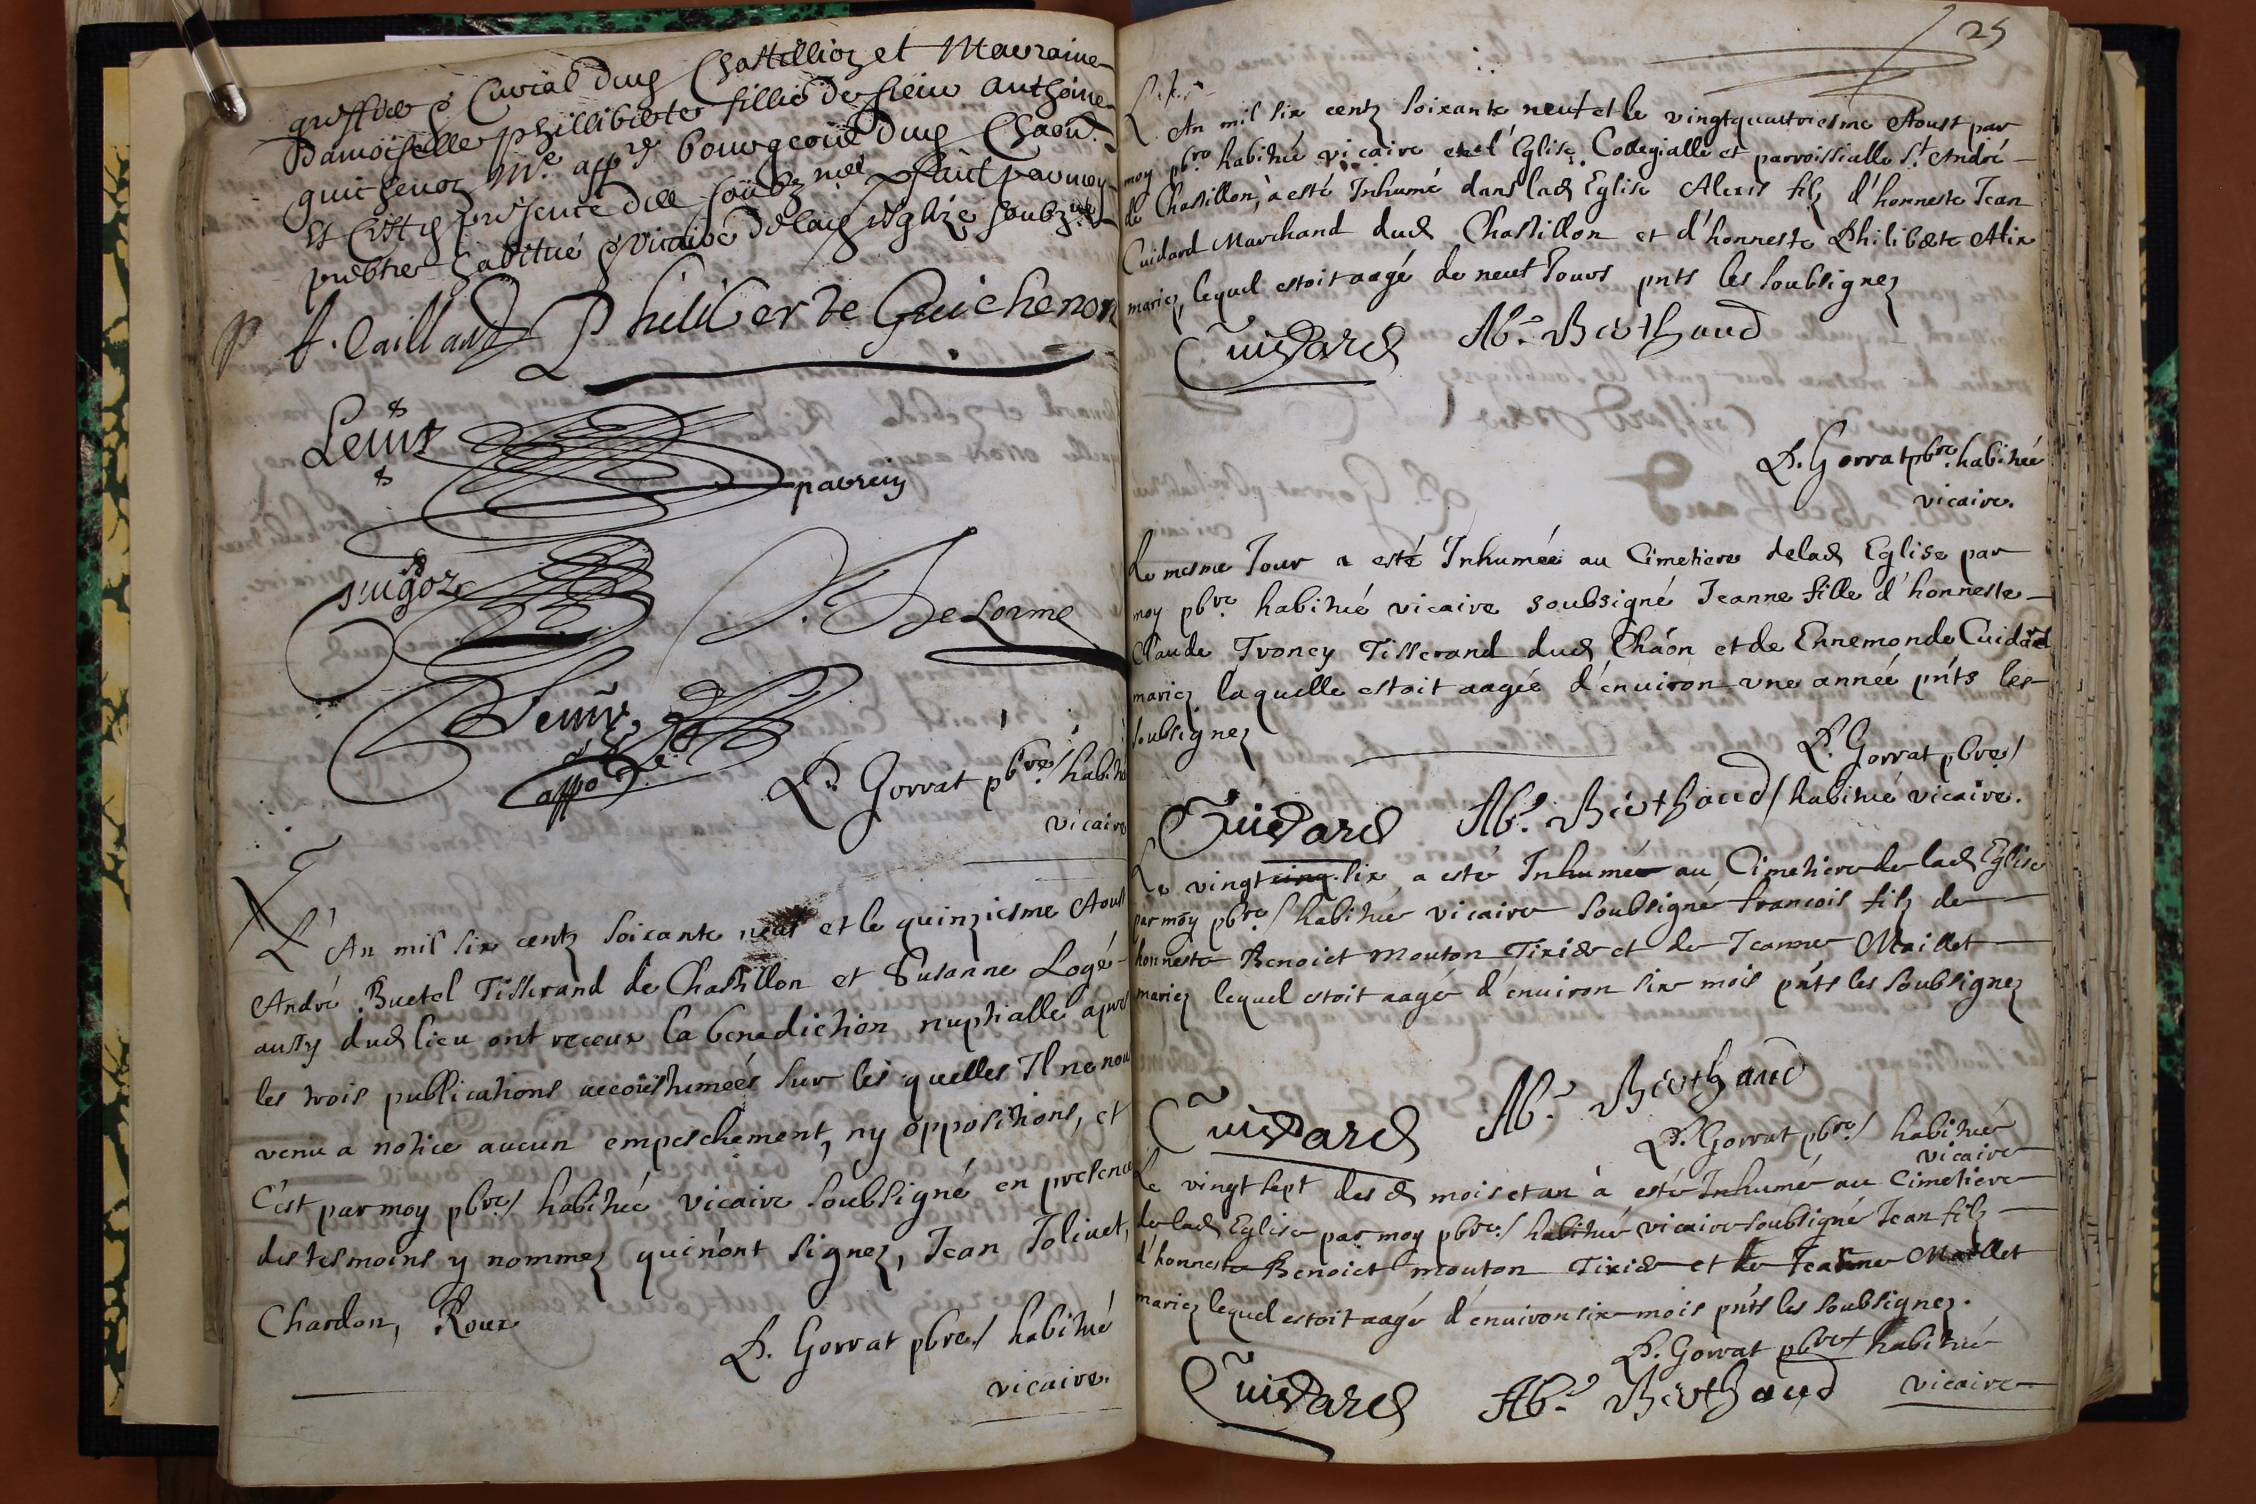 greffier & Curial dud Chastillion et Mauraine
Damoiselle Phillibertes fillie de sieur Anthoine
guichenon Me app.re bourgeois dud Chaon
Et C'est en presence des soubz nez fait par moy
prebtre habitué & vicaire de lad esglize soubz.né
A. Caillard Philiberte Guichenon
pavrein
De Lorme
app.re
P. Gorrat pbre/ habitué
vicaire
L'An mil six centz soixante neuf et le quinziesme Aoust
André Buetel Tisserand de Chastillon et Susanne Logé
aussy dud lieu ont receux la benediction nuptialle apres
les trois publications accoustumées sur les quelles Il ne nou
venu a notice aucun empeschement, ny oppositions, et
C'est par moy pbre/ habitué vicaire soubsigné en presence
des tesmoins y nommez qui n'ont signez, Jean Joliuet,
Chardon, Roux
P. Gorrat pbre/ habitué
vicaire.
25
L'An mil six centz soixante neuf et le vingtquatriesme Aoust par
moy pbre habitué vicaire en l'Eglise Collegialle et parroissialle St André
de Chastillon, a esté Inhumé dans lad Eglise Alexis filz d'honneste Jean
Cuidard Marchand dud Chastillon et d'honneste Philiberte Alix
mariez, lequel estoit aagé de neuf Jours pnts les soubsignez
Cuidard Ab. Berthaud
P. Gorrat pbre. habitué
vicaire.
Le mesme Jour a esté Inhumée au Cimetiere de lad Eglise par
moy pbre habitué vicaire soubsigné Jeanne fille d'honneste
Claude Troncy Tisserand dud Chaon et de Ennemonde Cuidard
mariez laquelle estoit aagée d'enuiron vne année pnts les
soubsignez
P. Gorrat pbre/
Cuidard Ab. Berthaud / habitué vicaire.
Le vingt cinq six a esté Inhumée au Cimetiere de lad Eglise
par moy pbre/ habitué vicaire soubsigné francois filz de
honneste Benoict Mouton Tixier et de Jeanne Maillet
mariez lequel estoit aagé d'enuiron six mois pnts les soubsignez
Cuidard Ab. Berthaud
P. Gorrat pbre/ habitué
vicaire
Le vingt sept desd mois et an à esté Inhumé au Cimetiere
de lad Eglise par moy pbre/ habitué vicaire soubsigné Jean filz
d'honneste Benoict mouton Tixier et de Jeanne Maillet
mariez lequel estoit aagé d'enuiron six mois pnts les soubsignez.
P. Gorrat pbre/ habitué
Cuidard Ab. Berthaud vicaire